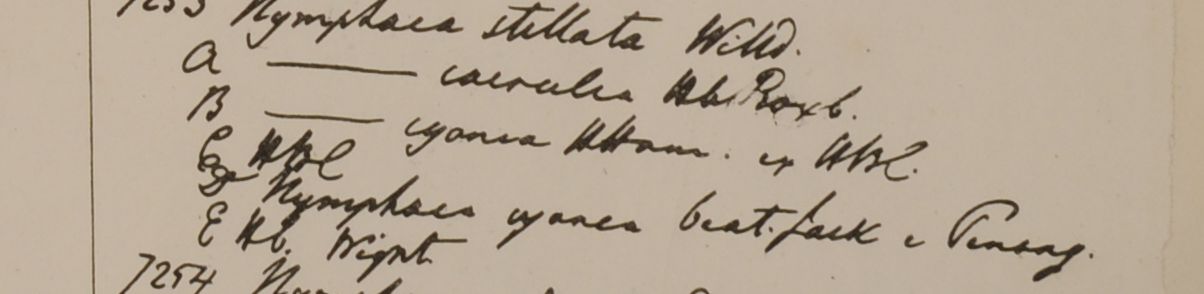 7253 Nymphaea stellata Willd.
A ——— caerulea Hb Roxb.
B ——— cyanea HHam. ex HBC.
C HBC
D Nymphaea cyanea beat. Jack e Penang.
E Hb. Wight
7254